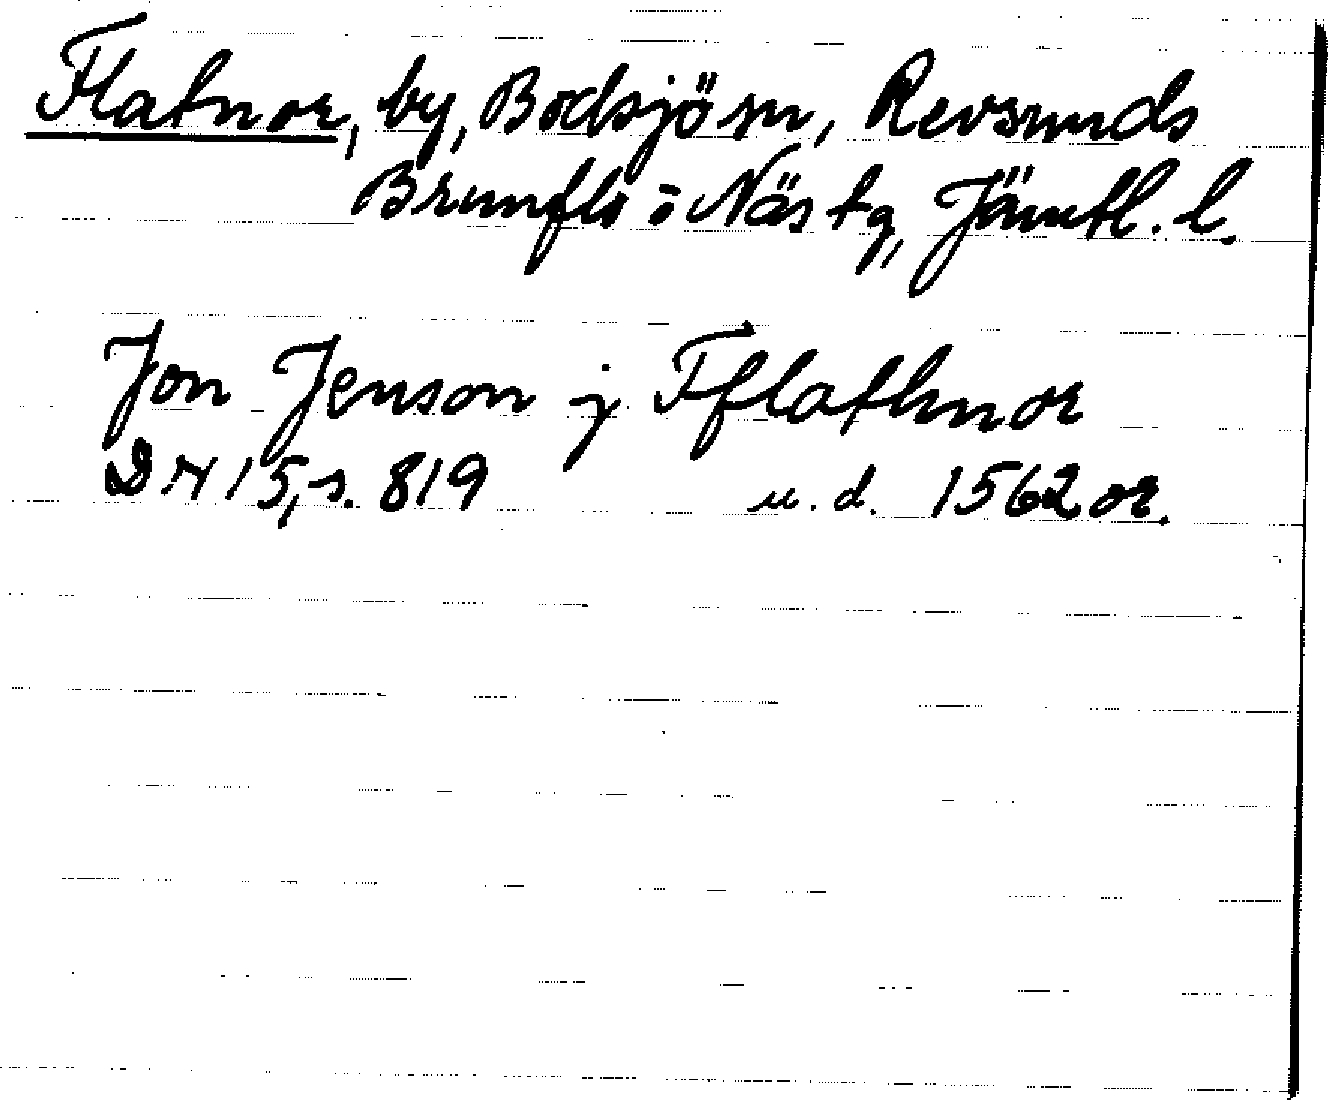 Flatnor, by, Bodsjö sn, Revsunds
Brunflo o Näs tg, Jämtl. l.
Jon Jenson j Fflathnor
DN 15, s. 819 u. d. 1562 or.